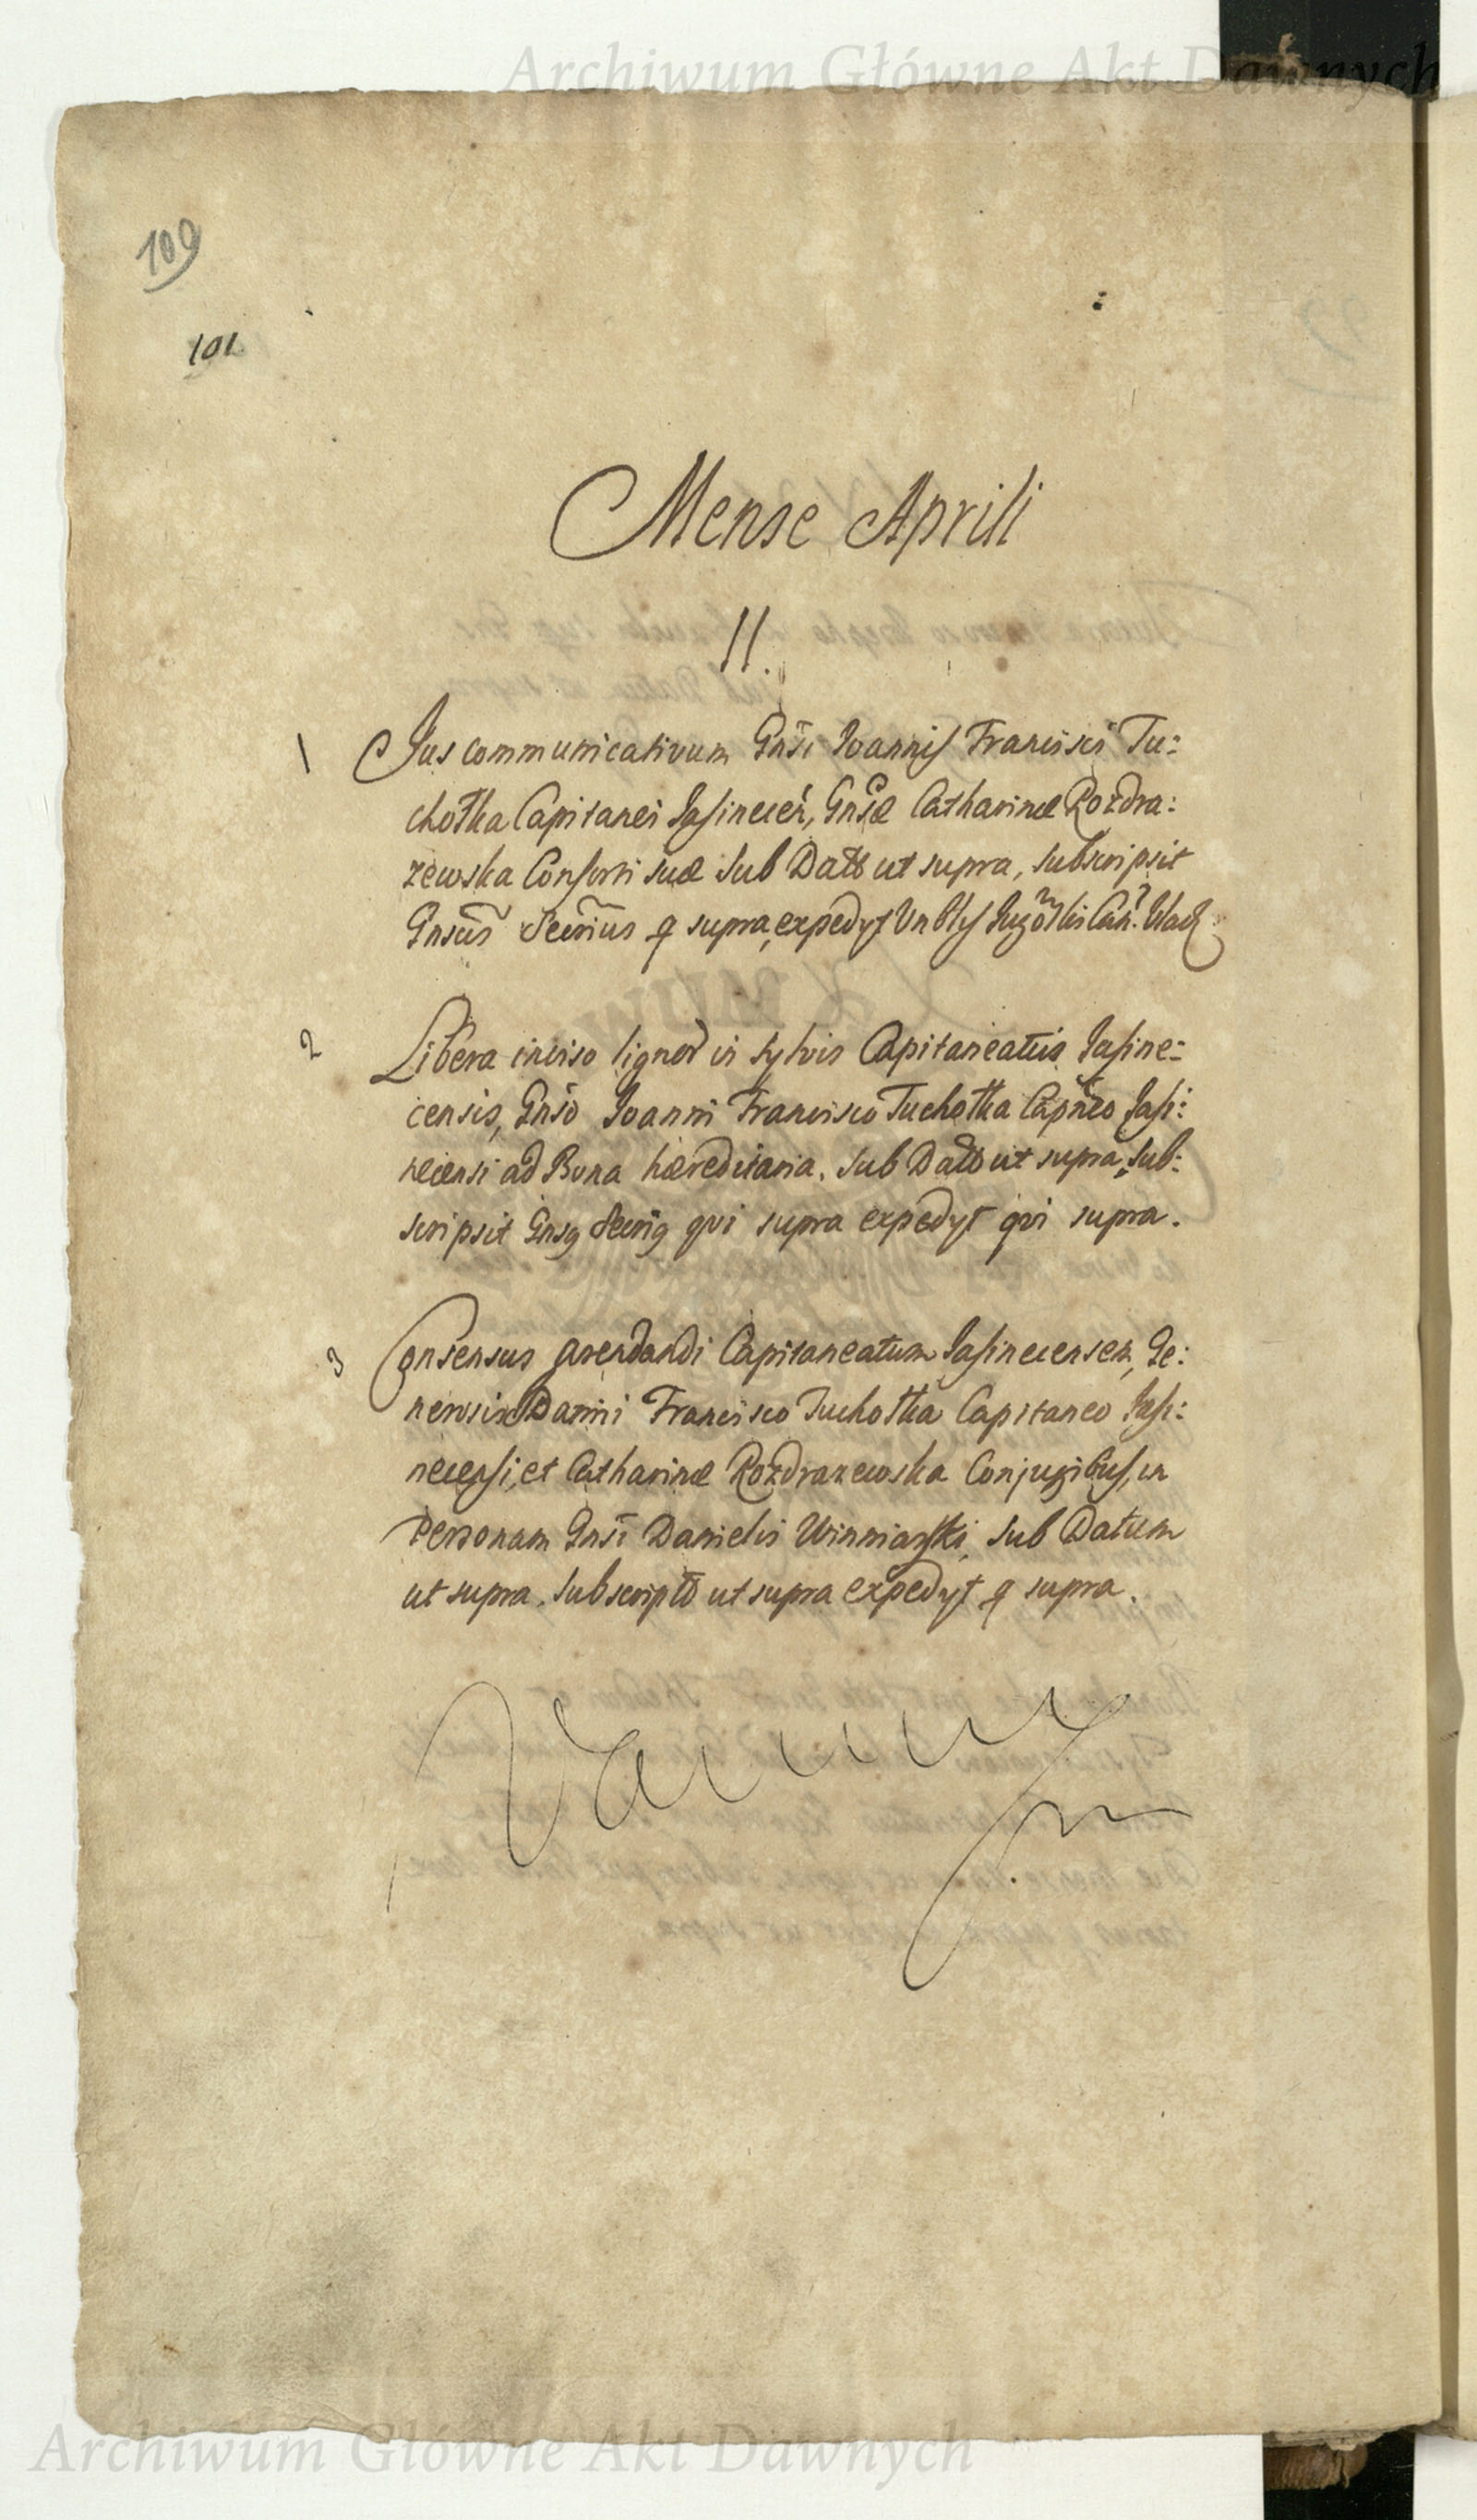 Archiwum Główne Akt Dawnych
109
101
Mense Aprili
11.
1 Jus communicativum Gnsi Joannis Francisci Tu:
chotka Capitanei Jasinecen, Gnsæ Catharinæ Rozdra:
zewska Consorti suæ sub Datt ut supra, subscripsit
Gnsus Secrius q supra, expedyt
2 Libera inciso lignor in sylvis Capitaneatus Jasine:
censis, Gnso Joanni Francisco Tuchotka Capneo Jasi:
necensi ad Bona hæreditaria. sub Datt ut supra, sub:
scripsit Gnsq Secriq qui supra expedyt qui supra.
3 Consensus arendandi Capitaneatum Jasinecensem, Ge:
Francisco Tuchotka Capitaneo Jasi:
necensi, et Catharinæ Rozdrazewska Conjugibus, in
Personam Gnsi Danielis Winniarski, sub Datum
ut supra. subscriptt ut supra expedyt q supra.
Archiwum Główne Akt Dawnych